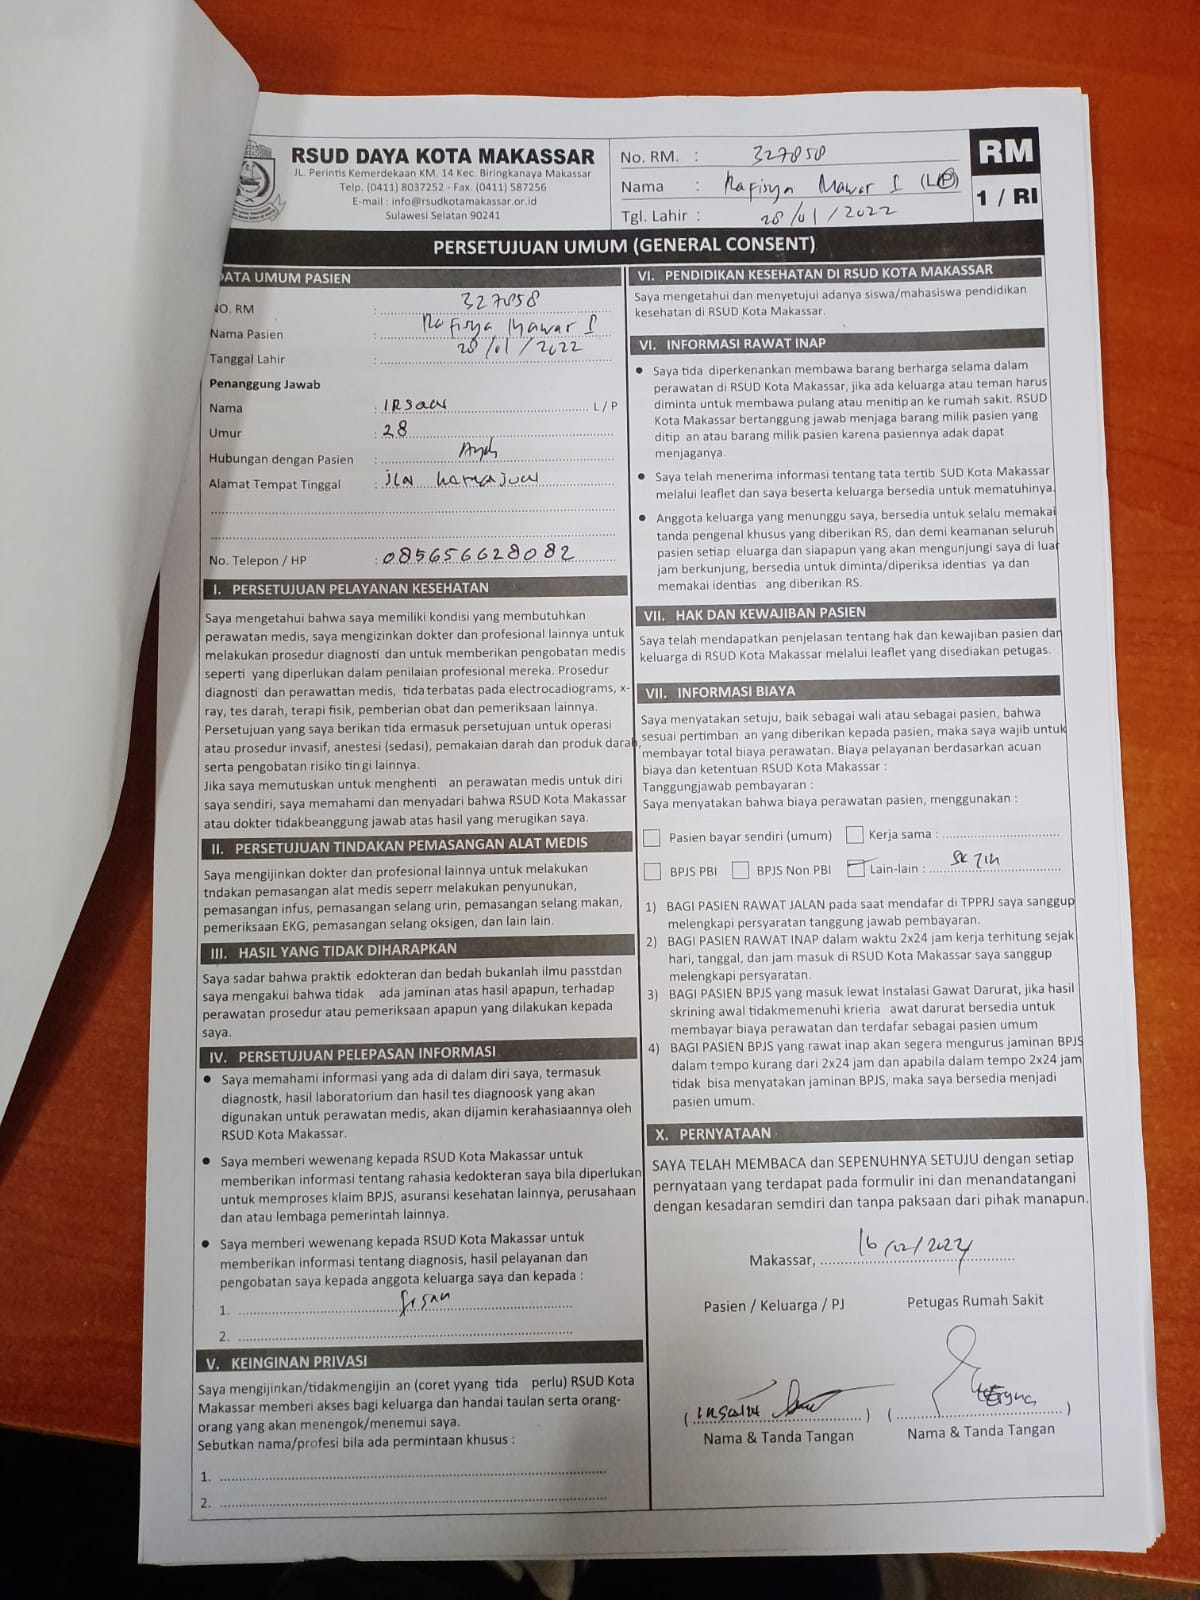 RSUD DAYA KOTA MAKASSAR
JL. Perintis Kemerdekaan KM. 14 Kec. Biringkanaya Makassar
Telp. (0411) 8037252 - Fax. (0411) 587256
E-mail : info@rsudkotamakassar.or.id
Sulawesi Selatan 90241
No. RM. : 327858
Nama : Rafisya Mawar I (L/P)
Tgl. Lahir : 28/01/2022
RM
1 / RI
PERSETUJUAN UMUM (GENERAL CONSENT)
DATA UMUM PASIEN
NO. RM : 327858
Nama Pasien : Rafisya Mawar I
Tanggal Lahir : 28/01/2022
Penanggung Jawab
Nama : IRSan L / P
Umur : 28
Hubungan dengan Pasien : Ayah
Alamat Tempat Tinggal : jln
No. Telepon / HP : 085656628082
I. PERSETUJUAN PELAYANAN KESEHATAN
Saya mengetahui bahwa saya memiliki kondisi yang membutuhkan
perawatan medis, saya mengizinkan dokter dan profesional lainnya untuk
melakukan prosedur diagnosti dan untuk memberikan pengobatan medis
seperti yang diperlukan dalam penilaian profesional mereka. Prosedur
diagnosti dan perawattan medis, tida terbatas pada electrocadiograms, x-
ray, tes darah, terapi fisik, pemberian obat dan pemeriksaan lainnya.
Persetujuan yang saya berikan tida ermasuk persetujuan untuk operasi
atau prosedur invasif, anestesi (sedasi), pemakaian darah dan produk darah,
serta pengobatan risiko tin gi lainnya.
Jika saya memutuskan untuk menghenti an perawatan medis untuk diri
saya sendiri, saya memahami dan menyadari bahwa RSUD Kota Makassar
atau dokter tidakbeanggung jawab atas hasil yang merugikan saya.
II. PERSETUJUAN TINDAKAN PEMASANGAN ALAT MEDIS
Saya mengijinkan dokter dan profesional lainnya untuk melakukan
tndakan pemasangan alat medis seperr melakukan penyunukan,
pemasangan infus, pemasangan selang urin, pemasangan selang makan,
pemeriksaan EKG, pemasangan selang oksigen, dan lain lain.
III. HASIL YANG TIDAK DIHARAPKAN
Saya sadar bahwa praktik edokteran dan bedah bukanlah ilmu passtdan
saya mengakui bahwa tidak ada jaminan atas hasil apapun, terhadap
perawatan prosedur atau pemeriksaan apapun yang dilakukan kepada
saya.
IV. PERSETUJUAN PELEPASAN INFORMASI
● Saya memahami informasi yang ada di dalam diri saya, termasuk
diagnostk, hasil laboratorium dan hasil tes diagnoosk yang akan
digunakan untuk perawatan medis, akan dijamin kerahasiaannya oleh
RSUD Kota Makassar.
● Saya memberi wewenang kepada RSUD Kota Makassar untuk
memberikan informasi tentang rahasia kedokteran saya bila diperlukan
untuk memproses klaim BPJS, asuransi kesehatan lainnya, perusahaan
dan atau lembaga pemerintah lainnya.
● Saya memberi wewenang kepada RSUD Kota Makassar untuk
memberikan informasi tentang diagnosis, hasil pelayanan dan
pengobatan saya kepada anggota keluarga saya dan kepada :
1. Irsan
2.
V. KEINGINAN PRIVASI
Saya mengijinkan/tidakmengijin an (coret yyang tida perlu) RSUD Kota
Makassar memberi akses bagi keluarga dan handai taulan serta orang-
orang yang akan menengok/menemui saya.
Sebutkan nama/profesi bila ada permintaan khusus :
1.
2.
VI. PENDIDIKAN KESEHATAN DI RSUD KOTA MAKASSAR
Saya mengetahui dan menyetujui adanya siswa/mahasiswa pendidikan
kesehatan di RSUD Kota Makassar.
VI. INFORMASI RAWAT INAP
● Saya tida diperkenankan membawa barang berharga selama dalam
perawatan di RSUD Kota Makassar, jika ada keluarga atau teman harus
diminta untuk membawa pulang atau menitip an ke rumah sakit. RSUD
Kota Makassar bertanggung jawab menjaga barang milik pasien yang
ditip an atau barang milik pasien karena pasiennya adak dapat
menjaganya.
● Saya telah menerima informasi tentang tata tertib SUD Kota Makassar
melalui leaflet dan saya beserta keluarga bersedia untuk mematuhinya.
● Anggota keluarga yang menunggu saya, bersedia untuk selalu memakai
tanda pengenal khusus yang diberikan RS, dan demi keamanan seluruh
pasien setiap eluarga dan siapapun yang akan mengunjungi saya di luar
jam berkunjung, bersedia untuk diminta/diperiksa identias ya dan
memakai identias ang diberikan RS.
VII. HAK DAN KEWAJIBAN PASIEN
Saya telah mendapatkan penjelasan tentang hak dan kewajiban pasien dan
keluarga di RSUD Kota Makassar melalui leaflet yang disediakan petugas.
VII. INFORMASI BIAYA
Saya menyatakan setuju, baik sebagai wali atau sebagai pasien, bahwa
sesuai pertimban an yang diberikan kepada pasien, maka saya wajib untuk
membayar total biaya perawatan. Biaya pelayanan berdasarkan acuan
biaya dan ketentuan RSUD Kota Makassar :
Tanggungjawab pembayaran :
Saya menyatakan bahwa biaya perawatan pasien, menggunakan :
Pasien bayar sendiri (umum) Kerja sama :
BPJS PBI BPJS Non PBI Lain-lain :
1) BAGI PASIEN RAWAT JALAN pada saat mendafar di TPPRJ saya sanggup
melengkapi persyaratan tanggung jawab pembayaran.
2) BAGI PASIEN RAWAT INAP dalam waktu 2x24 jam kerja terhitung sejak
hari, tanggal, dan jam masuk di RSUD Kota Makassar saya sanggup
melengkapi persyaratan.
3) BAGI PASIEN BPJS yang masuk lewat Instalasi Gawat Darurat, jika hasil
skrining awal tidakmemenuhi krieria awat darurat bersedia untuk
membayar biaya perawatan dan terdafar sebagai pasien umum
4) BAGI PASIEN BPJS yang rawat inap akan segera mengurus jaminan BPJS
dalam tempo kurang dari 2x24 jam dan apabila dalam tempo 2x24 jam
tidak bisa menyatakan jaminan BPJS, maka saya bersedia menjadi
pasien umum.
X. PERNYATAAN
SAYA TELAH MEMBACA dan SEPENUHNYA SETUJU dengan setiap
pernyataan yang terdapat pada formulir ini dan menandatangani
dengan kesadaran semdiri dan tanpa paksaan dari pihak manapun.
Makassar, 16/02/2024
Pasien / Keluarga / PJ Petugas Rumah Sakit
Nama & Tanda Tangan Nama & Tanda Tangan